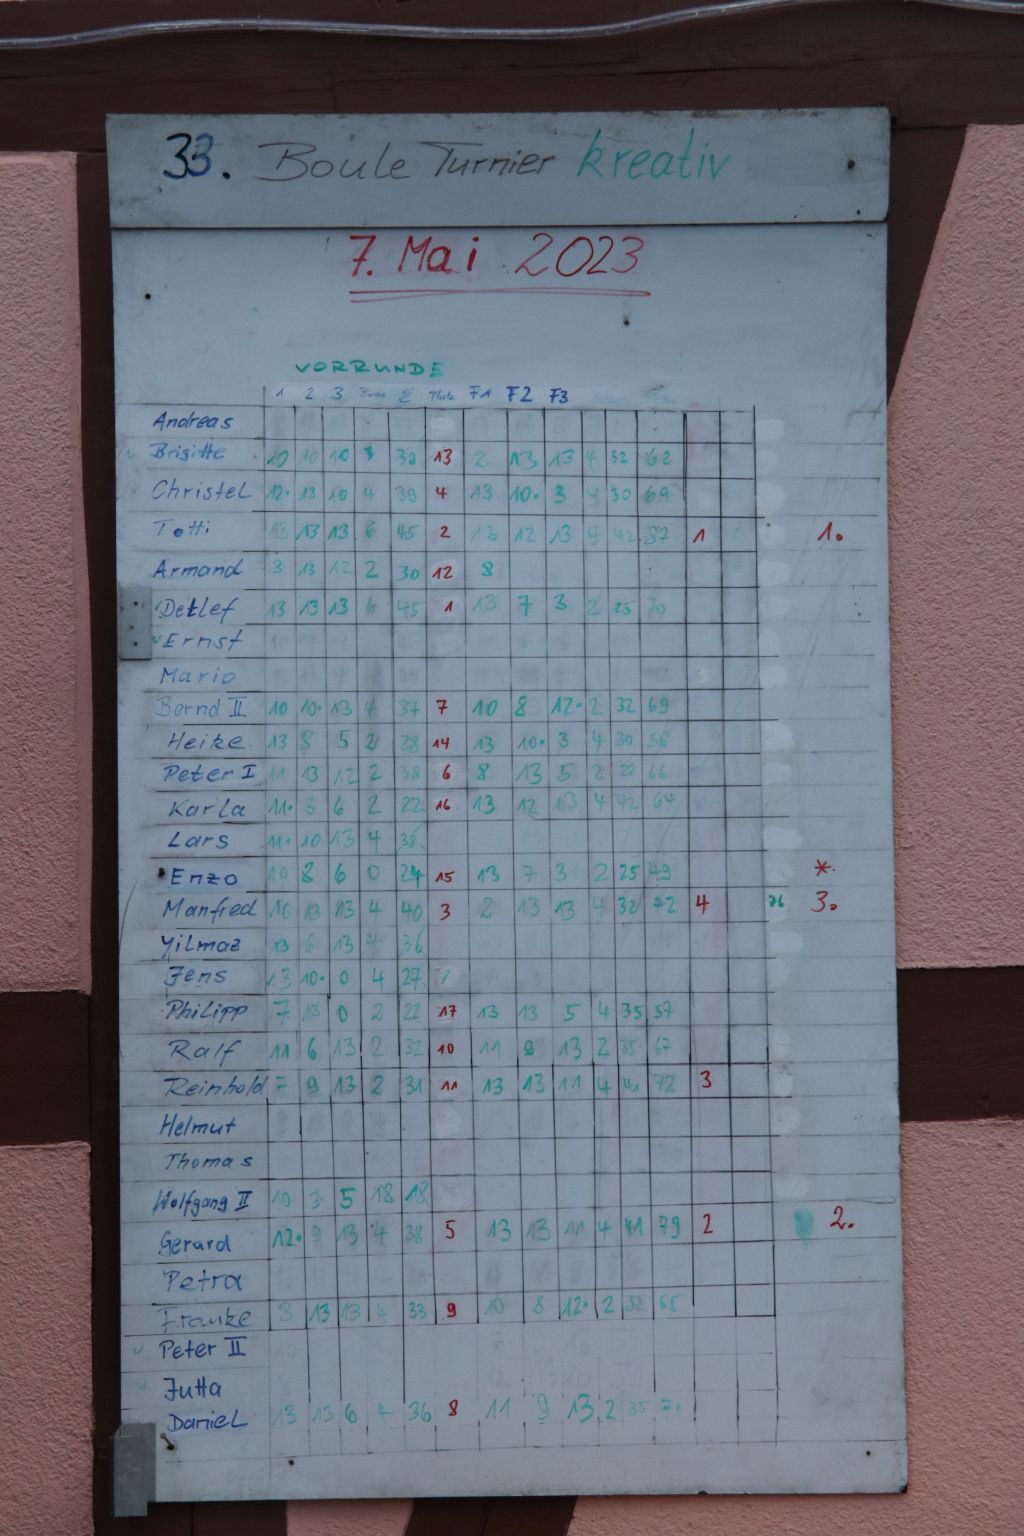 33. Boule Turnier kreativ
7. Mai 2023
VORRUNDE
1 2 3 Σ Platz F1 F2 F3
Andreas
Brigitte 10 10 10 13 2 13 13 4 32 62
Christel 12• 13 10 4 39 4 13 10• 3 4 30 69
Totti 13 13 6 45 2 13 12 13 4 42 87 1 1.
Armand 3 13 12 2 30 12 8
Detlef 13 13 13 6 45 1 13 7 3 2 25 70
Ernst
Mario
Bernd II 10 10• 13 4 37 7 10 8 12• 2 32 69
Heike 13 8 5 2 28 14 13 10• 3 4 30 58
Peter I 11 13 12 2 38 6 8 13 5 2 66
Karla 11• 3 6 2 22 16 13 12 13 4 42 64
Lars 11• 10 13 4 38
Enzo 10 8 6 0 24 15 13 7 3 2 25 49 *
Manfred 10 13 13 4 40 3 2 13 13 4 32 72 4 3.
Yilmaz 13 6 13 4 36
Jens 13 10• 0 4 27
Philipp 7 13 0 2 22 17 13 13 5 4 35 57
Ralf 11 6 13 2 32 10 11 9 13 2 35 67
Reinhold 7 9 13 2 31 11 13 13 11 4 41 72 3
Helmut
Thomas
Wolfgang II 10 3 5 18 18
Gerard 12• 9 13 4 38 5 13 13 11 4 41 79 2 2.
Petra
Frauke 3 13 13 4 33 9 10 8 12• 2 32 65
Peter II
Jutta
Daniel 13 13 6 4 36 8 11 9 13 2 35